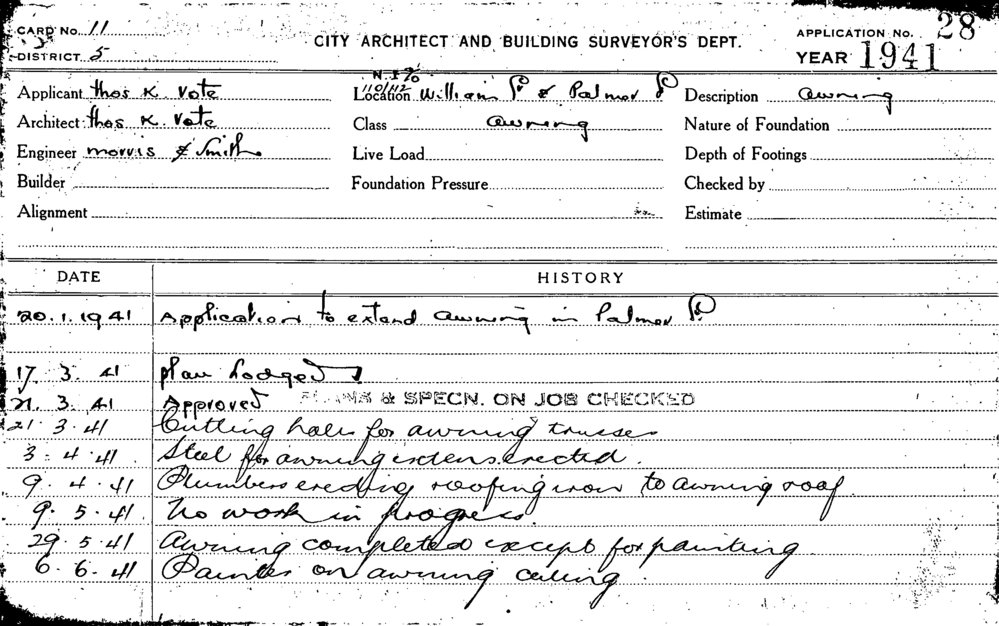 CARD No. 11
DISTRICT 5
CITY ARCHITECT AND BUILDING SURVEYOR'S DEPT.
APPLICATION No. 28
YEAR 1941
Applicant Thos K. Vote
Location 110/112 William St & Palmer St
Description Awning
Architect Thos K. Vote
Class Awning
Nature of Foundation
Engineer Morris & Smith
Live Load
Depth of Footings
Builder
Foundation Pressure
Checked by
Alignment
Estimate
DATE HISTORY
20.1.1941 Application to extend awning in Palmer St.
17. 3. 41 plan Lodged
21. 3. 41 Approved PLANS & SPECN. ON JOB CHECKED
21. 3. 41 Cutting holes for awning trusses
3. 4. 41 Steel for awning extens. erected.
9. 4. 41 Plumbers erecting roofing iron to awning roof
9. 5. 41 No work in progress.
29. 5. 41 Awning completed except for painting
6. 6. 41 Painter on awning ceiling.